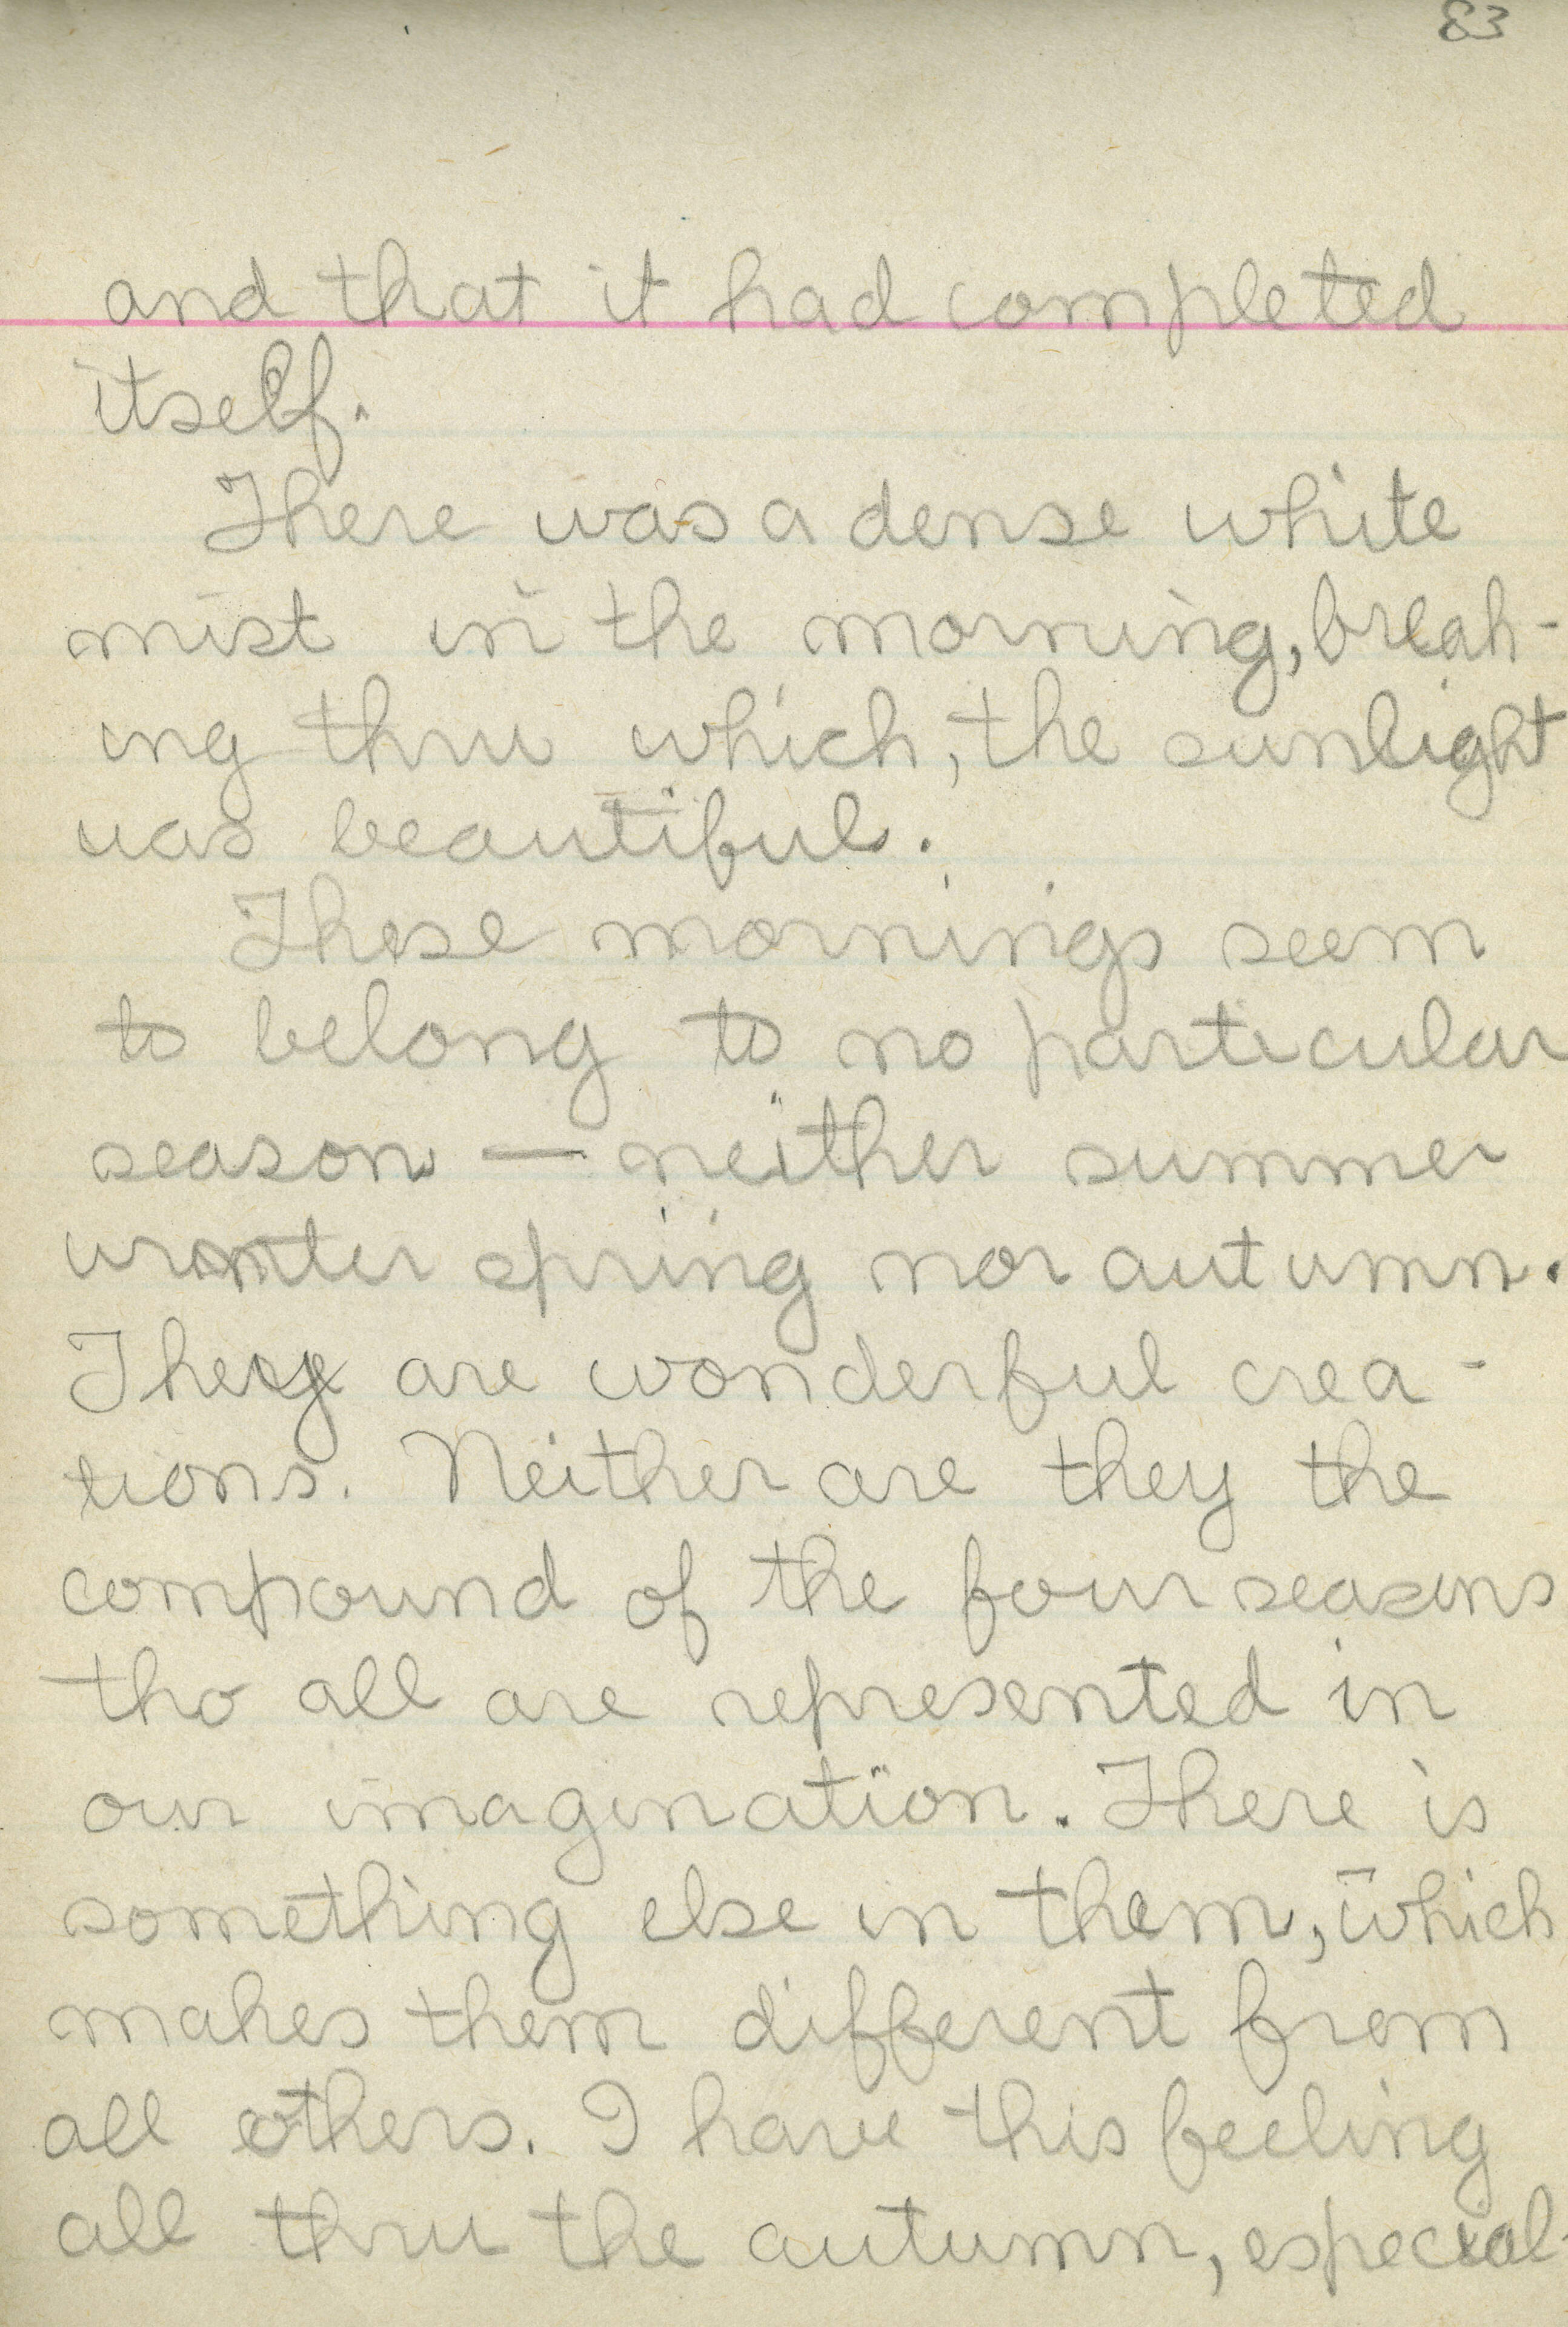 83
and that it had completed
itself.
There was a dense white
mist in the morning, break-
ing thru which, the sunlight
was beautiful.
These mornings seem
to belong to no particular
season — neither summer
winter spring nor autumn.
They are wonderful crea-
tions. Neither are they the
compound of the four seasons
tho all are represented in
our imagination. There is
something else in them, which
makes them different from
all others. I have this feeling
all thru the autumn, especial-